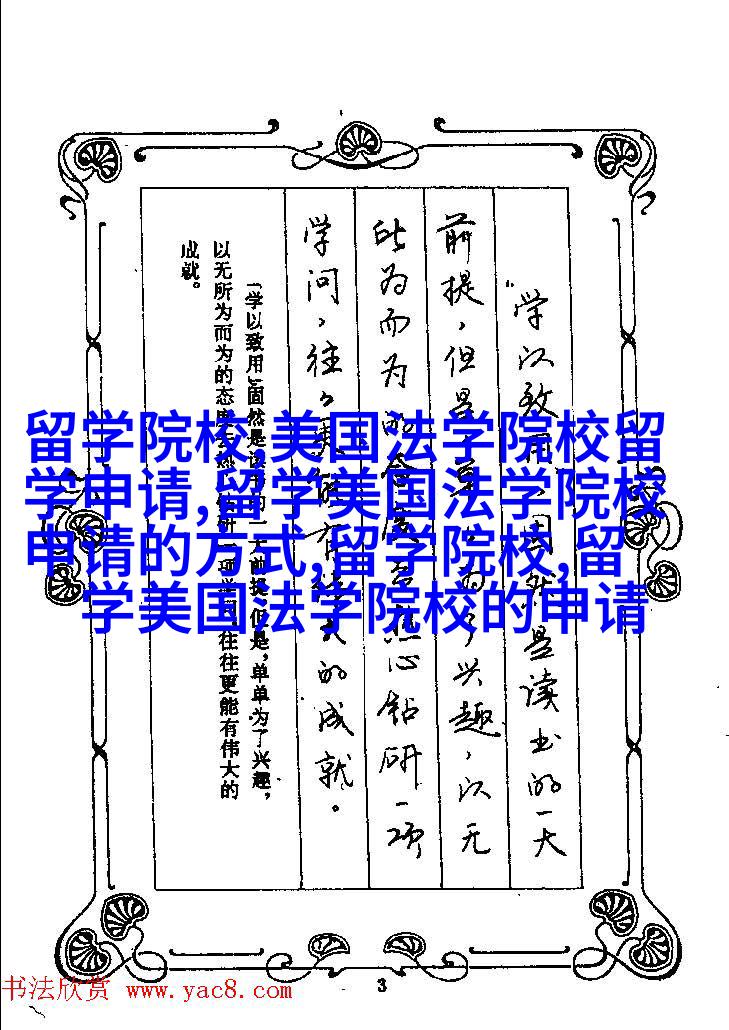 留学院校,美国法学院校留
学申请,留学美国法学院校
申请的方式,留学院校,留
学美国法学院校的申请
“学以致用”固然是读书的一大
前提,但是单单为了兴趣,以无
所为而为的态度去热心钻研一项
学问,往々更能有伟大的成就。
“学以致用”固然是读书的一大前提,但是,单单为了兴趣,
以无所为而为的态度去热心钻研一项学问,往往更能有伟大的
成就。
3
书法欣赏 www.yac8.com